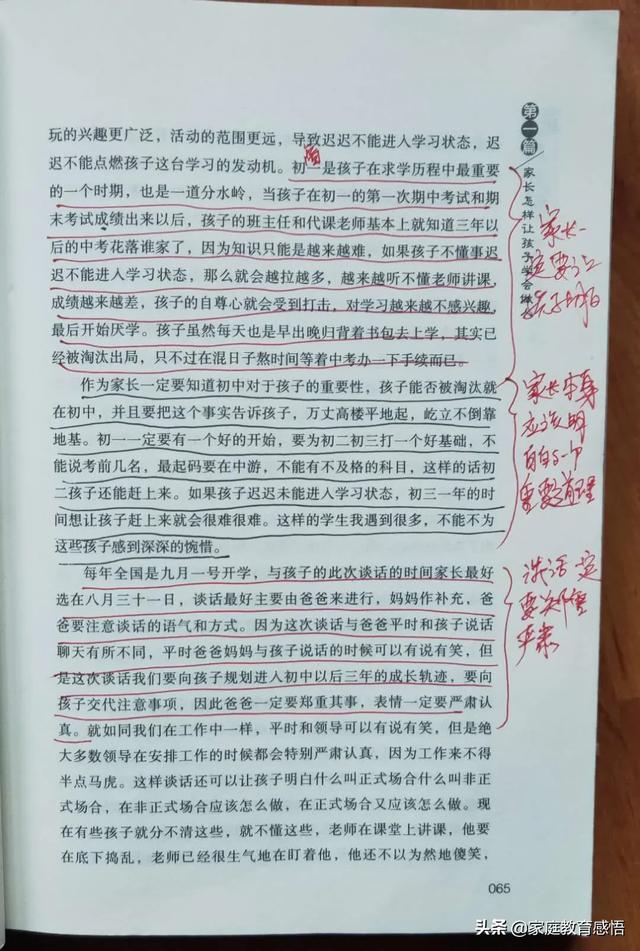 玩的兴趣更广泛，活动的范围更远，导致迟迟不能进入学习状态，迟
迟不能点燃孩子这台学习的发动机。初一是孩子在求学历程中最重要
的一个时期，也是一道分水岭，当孩子在初一的第一次期中考试和期
末考试成绩出来以后，孩子的班主任和代课老师基本上就知道三年以
后的中考花落谁家了，因为知识只能是越来越难，如果孩子不懂事迟
迟不能进入学习状态，那么就会越拉越多，越来越听不懂老师讲课，
成绩越来越差，孩子的自尊心就会受到打击，对学习越来越不感兴趣，
最后开始厌学。孩子虽然每天也是早出晚归背着书包去上学，其实已
经被淘汰出局，只不过在混日子熬时间等着中考办一下手续而已。
作为家长一定要知道初中对于孩子的重要性，孩子能否被淘汰就
在初中，并且要把这个事实告诉孩子，万丈高楼平地起，屹立不倒靠
地基。初一一定要有一个好的开始，要为初二初三打一个好基础，不
能说考前几名，最起码要在中游，不能有不及格的科目，这样的话初
二孩子还能赶上来。如果孩子迟迟未能进入学习状态，初三一年的时
间想让孩子赶上来就会很难很难。这样的学生我遇到很多，不能不为
这些孩子感到深深的惋惜。
每年全国是九月一号开学，与孩子的此次谈话的时间家长最好
选在八月三十一日，谈话最好主要由爸爸来进行，妈妈作补充，爸
爸要注意谈话的语气和方式。因为这次谈话与爸爸平时和孩子说话
聊天有所不同，平时爸爸妈妈与孩子说话的时候可以有说有笑，但
是这次谈话我们要向孩子规划进入初中以后三年的成长轨迹，要向
孩子交代注意事项，因此爸爸一定要郑重其事，表情一定要严肃认
真。就如同我们在工作中一样，平时和领导可以有说有笑，但是绝
大多数领导在安排工作的时候都会特别严肃认真，因为工作来不得
半点马虎。这样谈话还可以让孩子明白什么叫正式场合什么叫非正
式场合，在非正式场合应该怎么做，在正式场合又应该怎么做。现
在有些孩子就分不清这些，就不懂这些，老师在课堂上讲课，他要
在底下捣乱，老师已经很生气地在盯着他，他还不以为然地傻笑，
065
第一篇
家长怎样让孩子学会
家长一
定要让
孩子
家长本身
应该明
白
重要
谈话一定
要郑重
严肃
头条 @家庭教育感悟